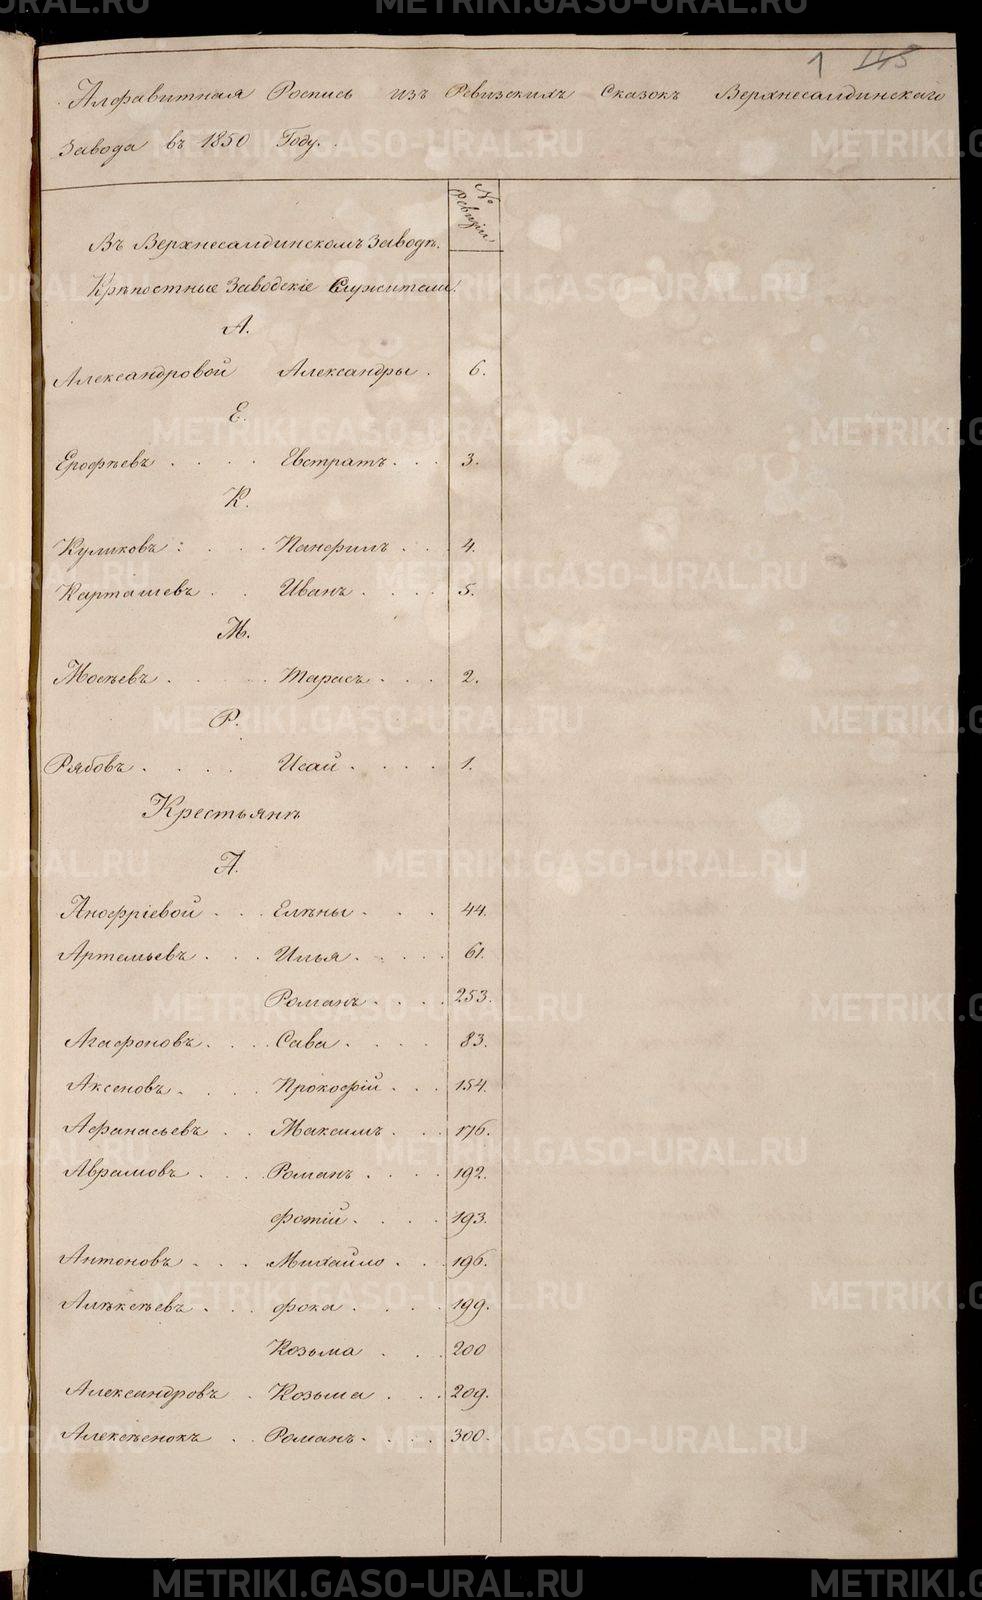 1 145
Алфавитная Роспись изъ Ревизскихъ Сказокъ Верхнесалдинскаго
Завода въ 1850 Году.
№ Ревизіи
Въ Верхнесалдинскомъ Заводѣ.
Крѣпостные Заводскіе Служители.
А.
Александровой Александры . 6.
Е.
Ерофѣевъ . . . . Евстратъ . . . 3.
К.
Куликовъ : . . . Панфилъ . . . 4.
Карташевъ . . Иванъ . . . . 5.
М.
Мосѣевъ . . . . Тарасъ . . . 2.
Р.
Рябовъ . . . . Исай . . . . 1.
Крестьянѣ
А.
Анофріевой . . . Елѣны . . . 44.
Артемьевъ . . . Илья . . . . . 61.
Романъ . . . . 253.
Агафоновъ . . . . Сава . . . . 83.
Аксеновъ . . . . Прокофій . . . 154.
Афанасьевъ . . Максимъ . . . 176.
Аврамовъ . . . . Романъ . . . . 192.
Фотій . . . . 193.
Антоновъ . . . Михайло . . . 196.
Алѣксѣевъ . . . Фока . . . . 199.
Козьма . . . 200
Александровъ . Козьма . . . 209.
Алексѣенокъ . . Романъ . . . . 300.
METRIKI.GASO-URAL.RU